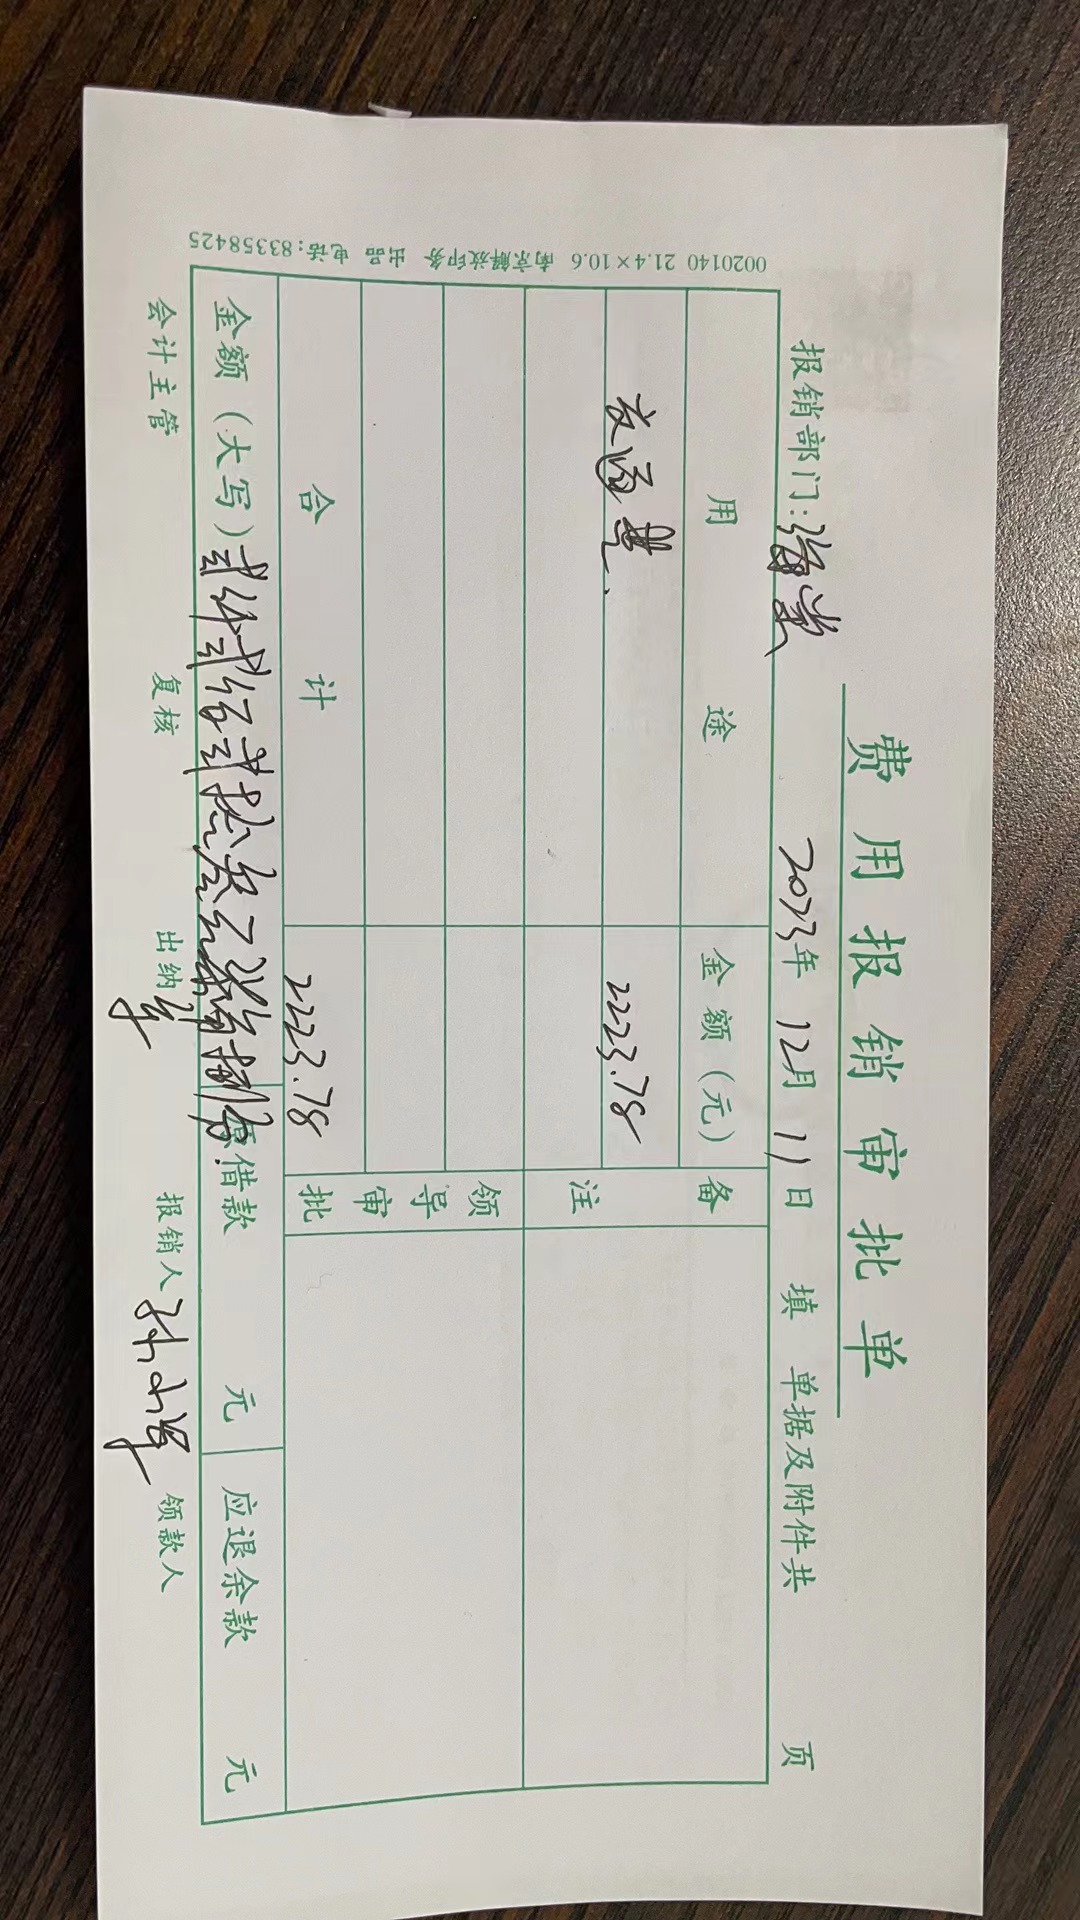 费用报销审批单
报销部门:海棠 2023年 12月 11日 填 单据及附件共 页
用途 金额(元) 备注
交通费 2223.78
领导审批
合计 2223.78
金额(大写)贰仟贰佰贰拾叁元柒角捌分 原借款 元 应退余款 元
会计主管 复核 出纳 报销人 领款人
0020140 21.4×10.6 南京解放印务 出品 电话:83358425